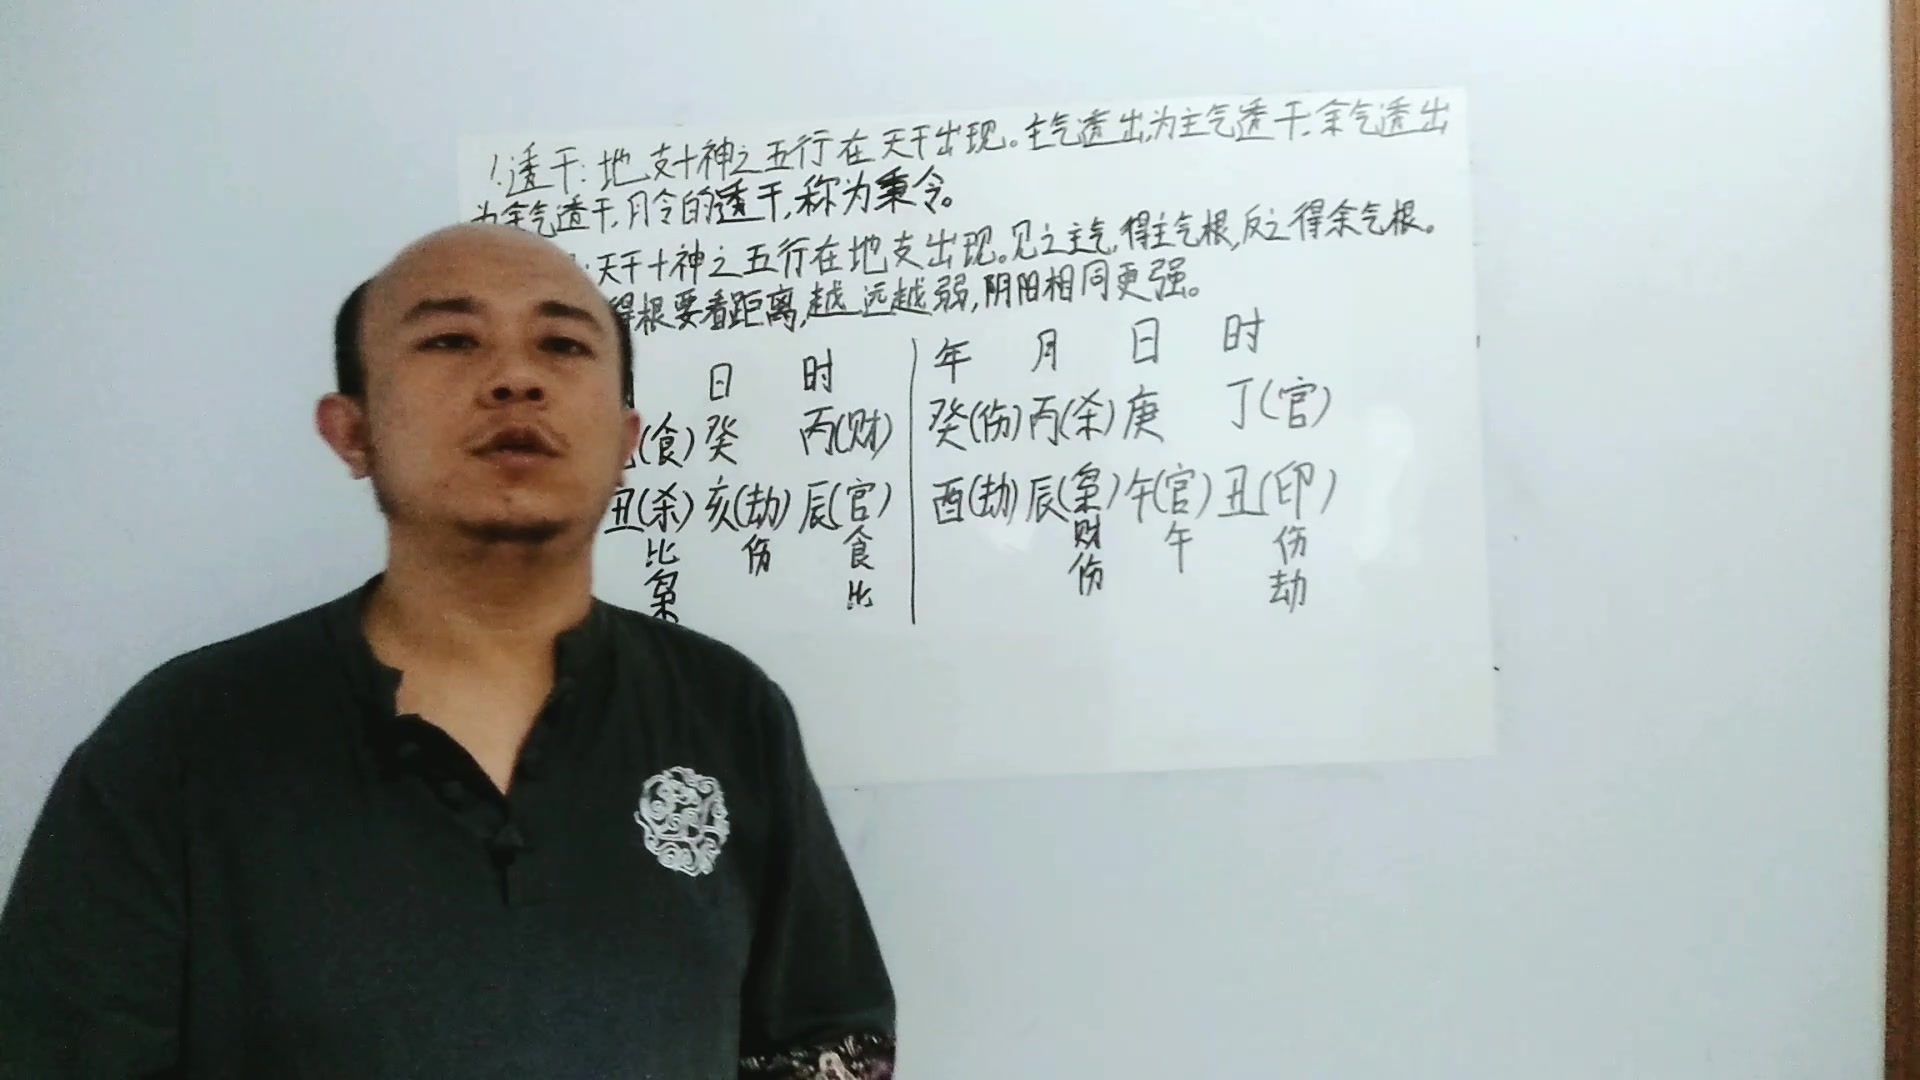 1.透干:地支十神之五行在天干出现。主气透出,为主气透干,余气透出
为余气透干,月令的透干,称为秉令。
:天干十神之五行在地支出现。见之主气,得主气根,反之得余气根。
得根要看距离,越远越弱,阴阳相同更强。
日 时 年 月 日 时
(食) 癸 丙(财) 癸(伤) 丙(杀) 庚 丁(官)
丑(杀) 亥(劫) 辰(官) 酉(劫) 辰(枭) 午(官) 丑(印)
比 伤 食 财 午 伤
枭 比 伤 劫